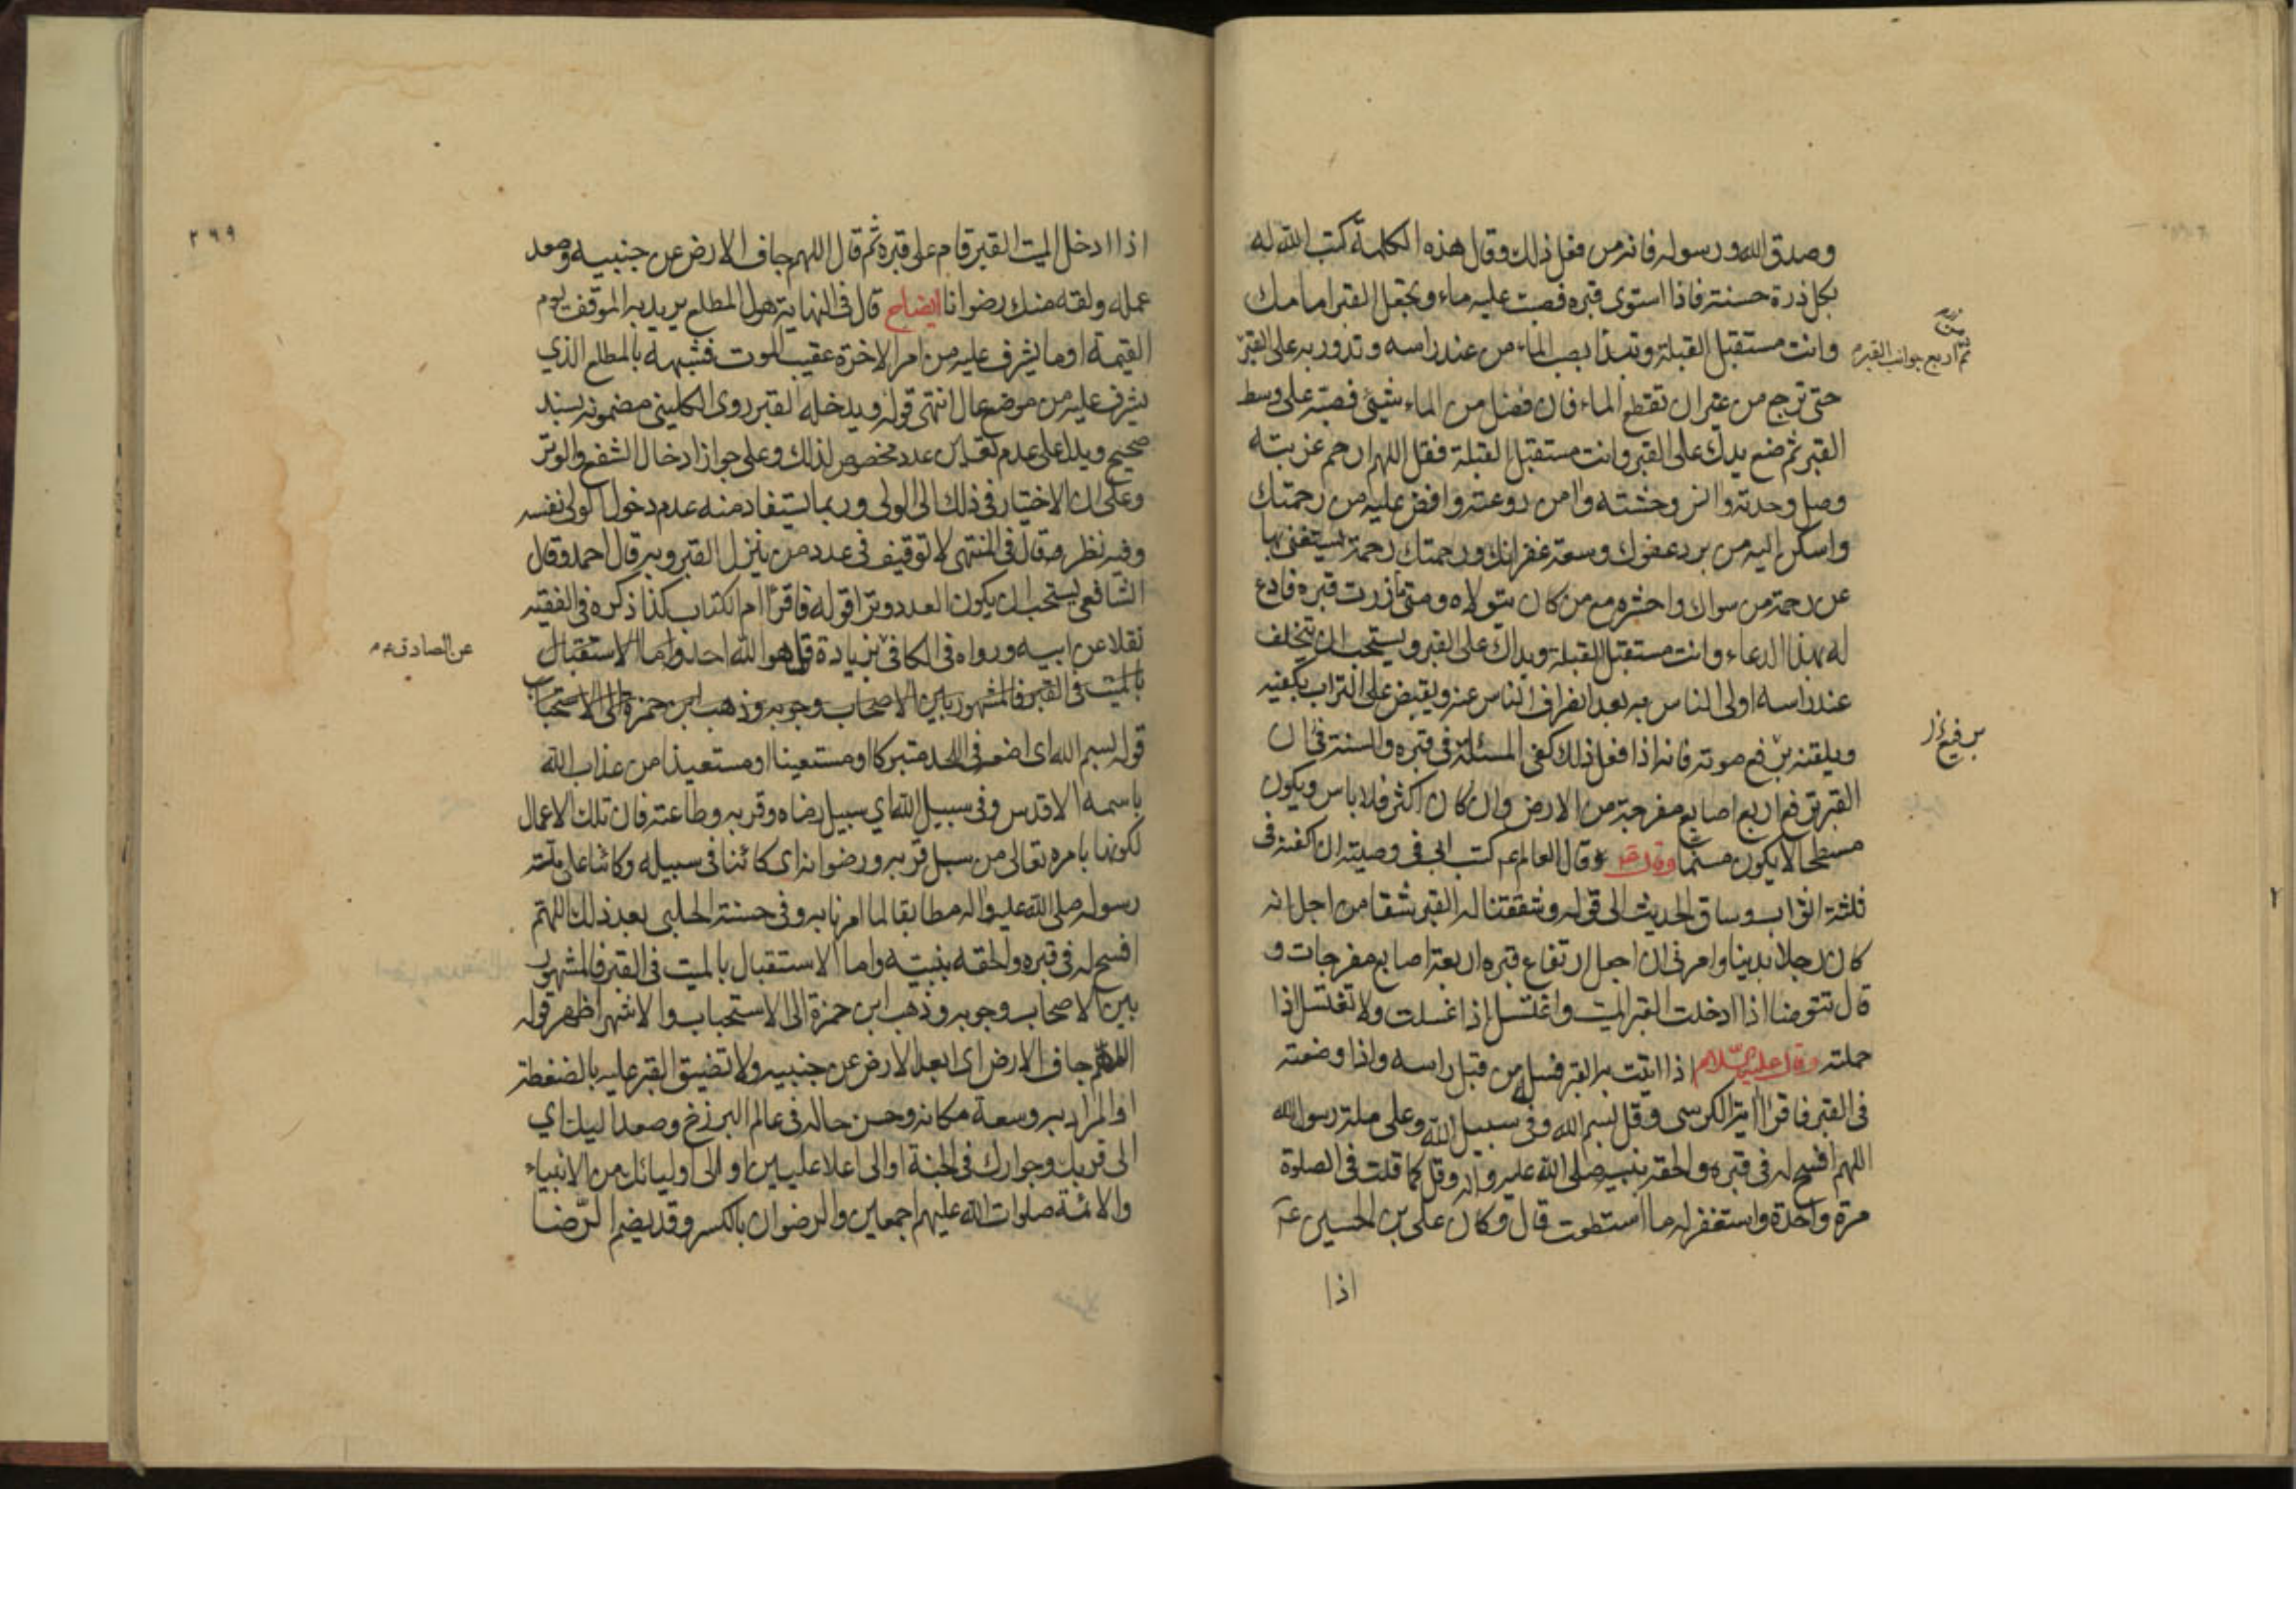 وصدق الله ورسوله فانه من فعل ذلك وقال هذه الكلمة كتب الله له
بكل ذرة حسنة فاذا استوى قبره فصب عليه ماء وتجعل القبر امامك
وانت مستقبل القبلة وتبدأ بصب الماء من عند راسه وتدور به على القبر
ثم اربع جوانب القبر
حتى ترجع من غير ان تقطع الماء فان فضل من الماء شيئ فصبه على وسط
القبر ثم ضع يدك على القبر وانت مستقبل القبلة فقل اللهم ارحم غربته
وصل وحدته وانس وحشته وامن روعته وافض عليه من رحمتك
واسكن اليه من برد عفوك وسعة غفرانك ورحمتك رحمة يستغنى بها
عن رحمة من سواك واحشره مع من كان يتولاه ومتى زرت قبره فادع
له بهذا الدعاء وانت مستقبل القبلة ويداك على القبر ويستحب ان يتخلف
عند راسه اولى الناس به بعد انصراف الناس عنه ويقبض على التراب بكفيه
ويلقنه برفيع صوته فانه اذا فعل ذلك كفى المسئلة في قبره والسنة في ان
برفيع
القبر يرفع اربع اصابع مفرجة من الارض وان كان اكثر فلا باس ويكون
مسطحا لا يكون مسنما وقال العالم ع كتب ابي في وصيته ان اكفنه في
ثلثة اثواب وساق الحديث الى قوله وشققنا له القبر شقا من اجل انه
كان رجلا بدينا وامرني ان اجعل ارتفاع قبره اربعة اصابع مفرجات و
قال تتوضا اذا ادخلت القبر الميت واغتسل اذا غسلت ولا تغتسل اذا
حملته وقال عليه السلام اذا اتيت به القبر فسله من قبل راسه واذا وضعته
في القبر فاقرأ اية الكرسي وقل بسم الله وفي سبيل الله وعلى ملة رسول الله
اللهم افسح له في قبره والحقه بنبيه صلى الله عليه واله وقل كما قلت في الصلوة
مرة واحدة واستغفر له ما استطعت قال وكان علي بن الحسين ع
اذا
٢٩٩
اذا ادخل الميت القبر قام على قبره ثم قال اللهم جاف الارض عن جنبيه وصعد
عمله ولقه منك رضوانا ايضاح قال في النهاية هول المطلع يريد به الموقف يوم
القيمة او ما يشرف عليه من امر الاخرة عقيب الموت فشبهه بالمطلع الذي
يشرف عليه من موضع عال انتهى قوله ويدخله القبر روى الكليني مضمونه بسند
صحيح ويدل على عدم تعين عدد مخصوص لذلك وعلى جواز ادخال الشفع والوتر
وعلى ان الاختيار في ذلك الى الولي وربما يستفاد منه عدم دخول الولي نفسه
وفيه نظر وقال في المنتهى لا توقيف في عدد من ينزل القبر وبه قال احمد وقال
الشافعي يستحب ان يكون العدد وترا قوله فاقرأ ام الكتاب كذا ذكره في الفقيه
نقلا عن ابيه ورواه في الكافي بزيادة قل هو الله احد واما الاستقبال
عن الصادق ع
بالميت في القبر فالمشهور بين الاصحاب وجوبه وذهب ابن حمزة الى الاستحباب
قوله بسم الله اى اضعه في اللحد متبركا او مستعينا او مستعيذا من عذاب الله
باسمه الاقدس وفي سبيل الله اي سبيل رضاه وقربه وطاعته فان تلك الاعمال
لكونها بامره تعالى من سبل قربه ورضوانه اى كائنا في سبيله وكائنا على ملة
رسوله صلى الله عليه واله مطابقا لما امرنا به وفي حسنة الحلبي بعد ذلك اللهم
افسح له في قبره والحقه بنبيه واما الاستقبال بالميت في القبر فالمشهور
بين الاصحاب وجوبه وذهب ابن حمزة الى الاستحباب والاشهر اظهر قوله
اللهم جاف الارض اى ابعد الارض عن جنبيه ولا تضيق القبر عليه بالضغطة
او المراد به وسعة مكانه وحسن حاله في عالم البرزخ وصعد اليك اي
الى قربك وجوارك في الجنة او الى اعلا عليين او الى اوليائك من الانبياء
والائمة صلوات الله عليهم اجمعين والرضوان بالكسر وقد يضم الرضا